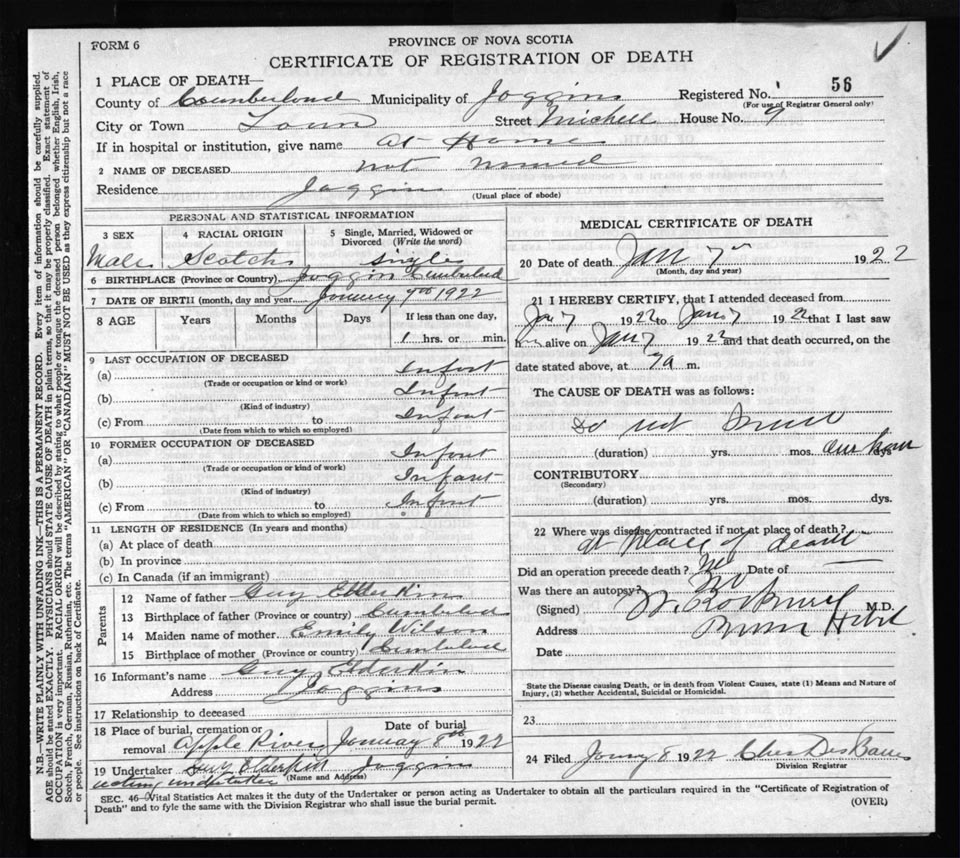 FORM 6
PROVINCE OF NOVA SCOTIA
CERTIFICATE OF REGISTRATION OF DEATH
1 PLACE OF DEATH—
County of Cumberland Municipality of Joggins Registered No. 56
(For use of Registrar General only)
City or Town Town Street Michell House No. 9
If in hospital or institution, give name at Home
2 NAME OF DECEASED not named
Residence Joggins
(Usual place of abode)
PERSONAL AND STATISTICAL INFORMATION
3 SEX 4 RACIAL ORIGIN 5 Single, Married, Widowed or Divorced (Write the word)
Male Scotch Single
6 BIRTHPLACE (Province or Country) Joggins Cumberland
7 DATE OF BIRTH (month, day and year) January 7th 1922
8 AGE Years Months Days If less than one day,
1 hrs. or min.
9 LAST OCCUPATION OF DECEASED
(a) Infant
(Trade or occupation or kind or work)
(b) Infant
(Kind of industry)
(c) From to Infant
(Date from which to which so employed)
10 FORMER OCCUPATION OF DECEASED
(a) Infant
(Trade or occupation or kind of work)
(b) Infant
(Kind of industry)
(c) From to Infant
(Date from which to which so employed)
11 LENGTH OF RESIDENCE (In years and months)
(a) At place of death
(b) In province
(c) In Canada (if an immigrant)
Parents
12 Name of father Guy Elderkin
13 Birthplace of father (Province or country) Cumberland
14 Maiden name of mother Emily Wilson
15 Birthplace of mother (Province or country) Cumberland
16 Informant's name Guy Elderkin
Address Joggins
17 Relationship to deceased
18 Place of burial, cremation or removal Apple River Date of burial January 8th 1922
19 Undertaker Guy Elderkin Joggins
(Name and Address)
acting undertaker
MEDICAL CERTIFICATE OF DEATH
20 Date of death Jan 7 1922
(Month, day and year)
21 I HEREBY CERTIFY, that I attended deceased from
Jan 7 1922 to Jan 7 1922 that I last saw
him alive on Jan 7 1922 and that death occurred, on the
date stated above, at 7 a m.
The CAUSE OF DEATH was as follows:
Do not know
(duration) yrs. mos. one hour dys.
CONTRIBUTORY
(Secondary)
(duration) yrs. mos. dys.
22 Where was disease contracted if not at place of death?
at place of death
Did an operation precede death? No Date of —
Was there an autopsy? No
(Signed) M.D.
Address River Hebert
Date
State the Disease causing Death, or in death from Violent Causes, state (1) Means and Nature of
Injury, (2) whether Accidental, Suicidal or Homicidal.
23
24 Filed 8 1922 Chas DesBarres
Division Registrar
SEC. 46—Vital Statistics Act makes it the duty of the Undertaker or person acting as Undertaker to obtain all the particulars required in the "Certificate of Registration of
Death" and to fyle the same with the Division Registrar who shall issue the burial permit.
(OVER)
N.B.—WRITE PLAINLY WITH UNFADING INK—THIS IS A PERMANENT RECORD. Every item of information should be carefully supplied.
AGE should be stated EXACTLY. PHYSICIANS should STATE CAUSE OF DEATH in plain terms, so that it may be properly classified. Exact statement of
OCCUPATION is very important. RACIAL ORIGIN will be described by stating to what people or tongue the deceased person belonged, whether English, Irish,
Scotch, French, German, Russian, Ruthenian, etc. The terms "AMERICAN" OR "CANADIAN" MUST NOT BE USED as they express citizenship but not a race
or people. See instructions on back of Certificate.